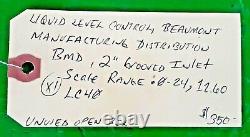 LIQUID LEVEL CONTROL, BEAUMONT
MANUFACTURING DISTRIBUTION
BMD, 2" GROOVED INLET
SCALE RANGE: 0-24, 1260
X1
LC40
$350-
UNUSED OPEN